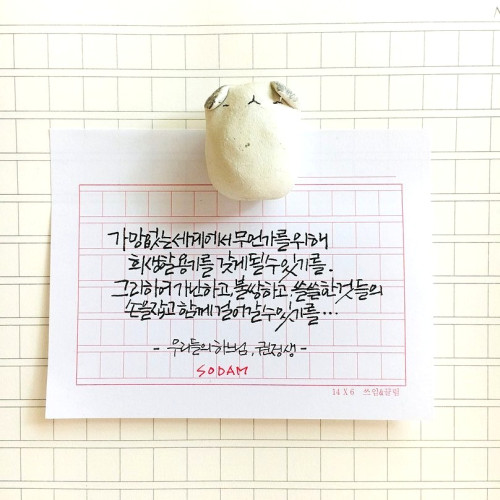 가망없는 세계에서 무언가를 위해
희생할 용기를 갖게 될 수 있기를.
그리하여 가난하고, 불쌍하고, 쓸쓸한 것들의
손을 잡고 함께 걸어갈 수 있기를...
- 우리들의 하느님, 권정생 -
SODAM
14 X 6 쓰임&글월